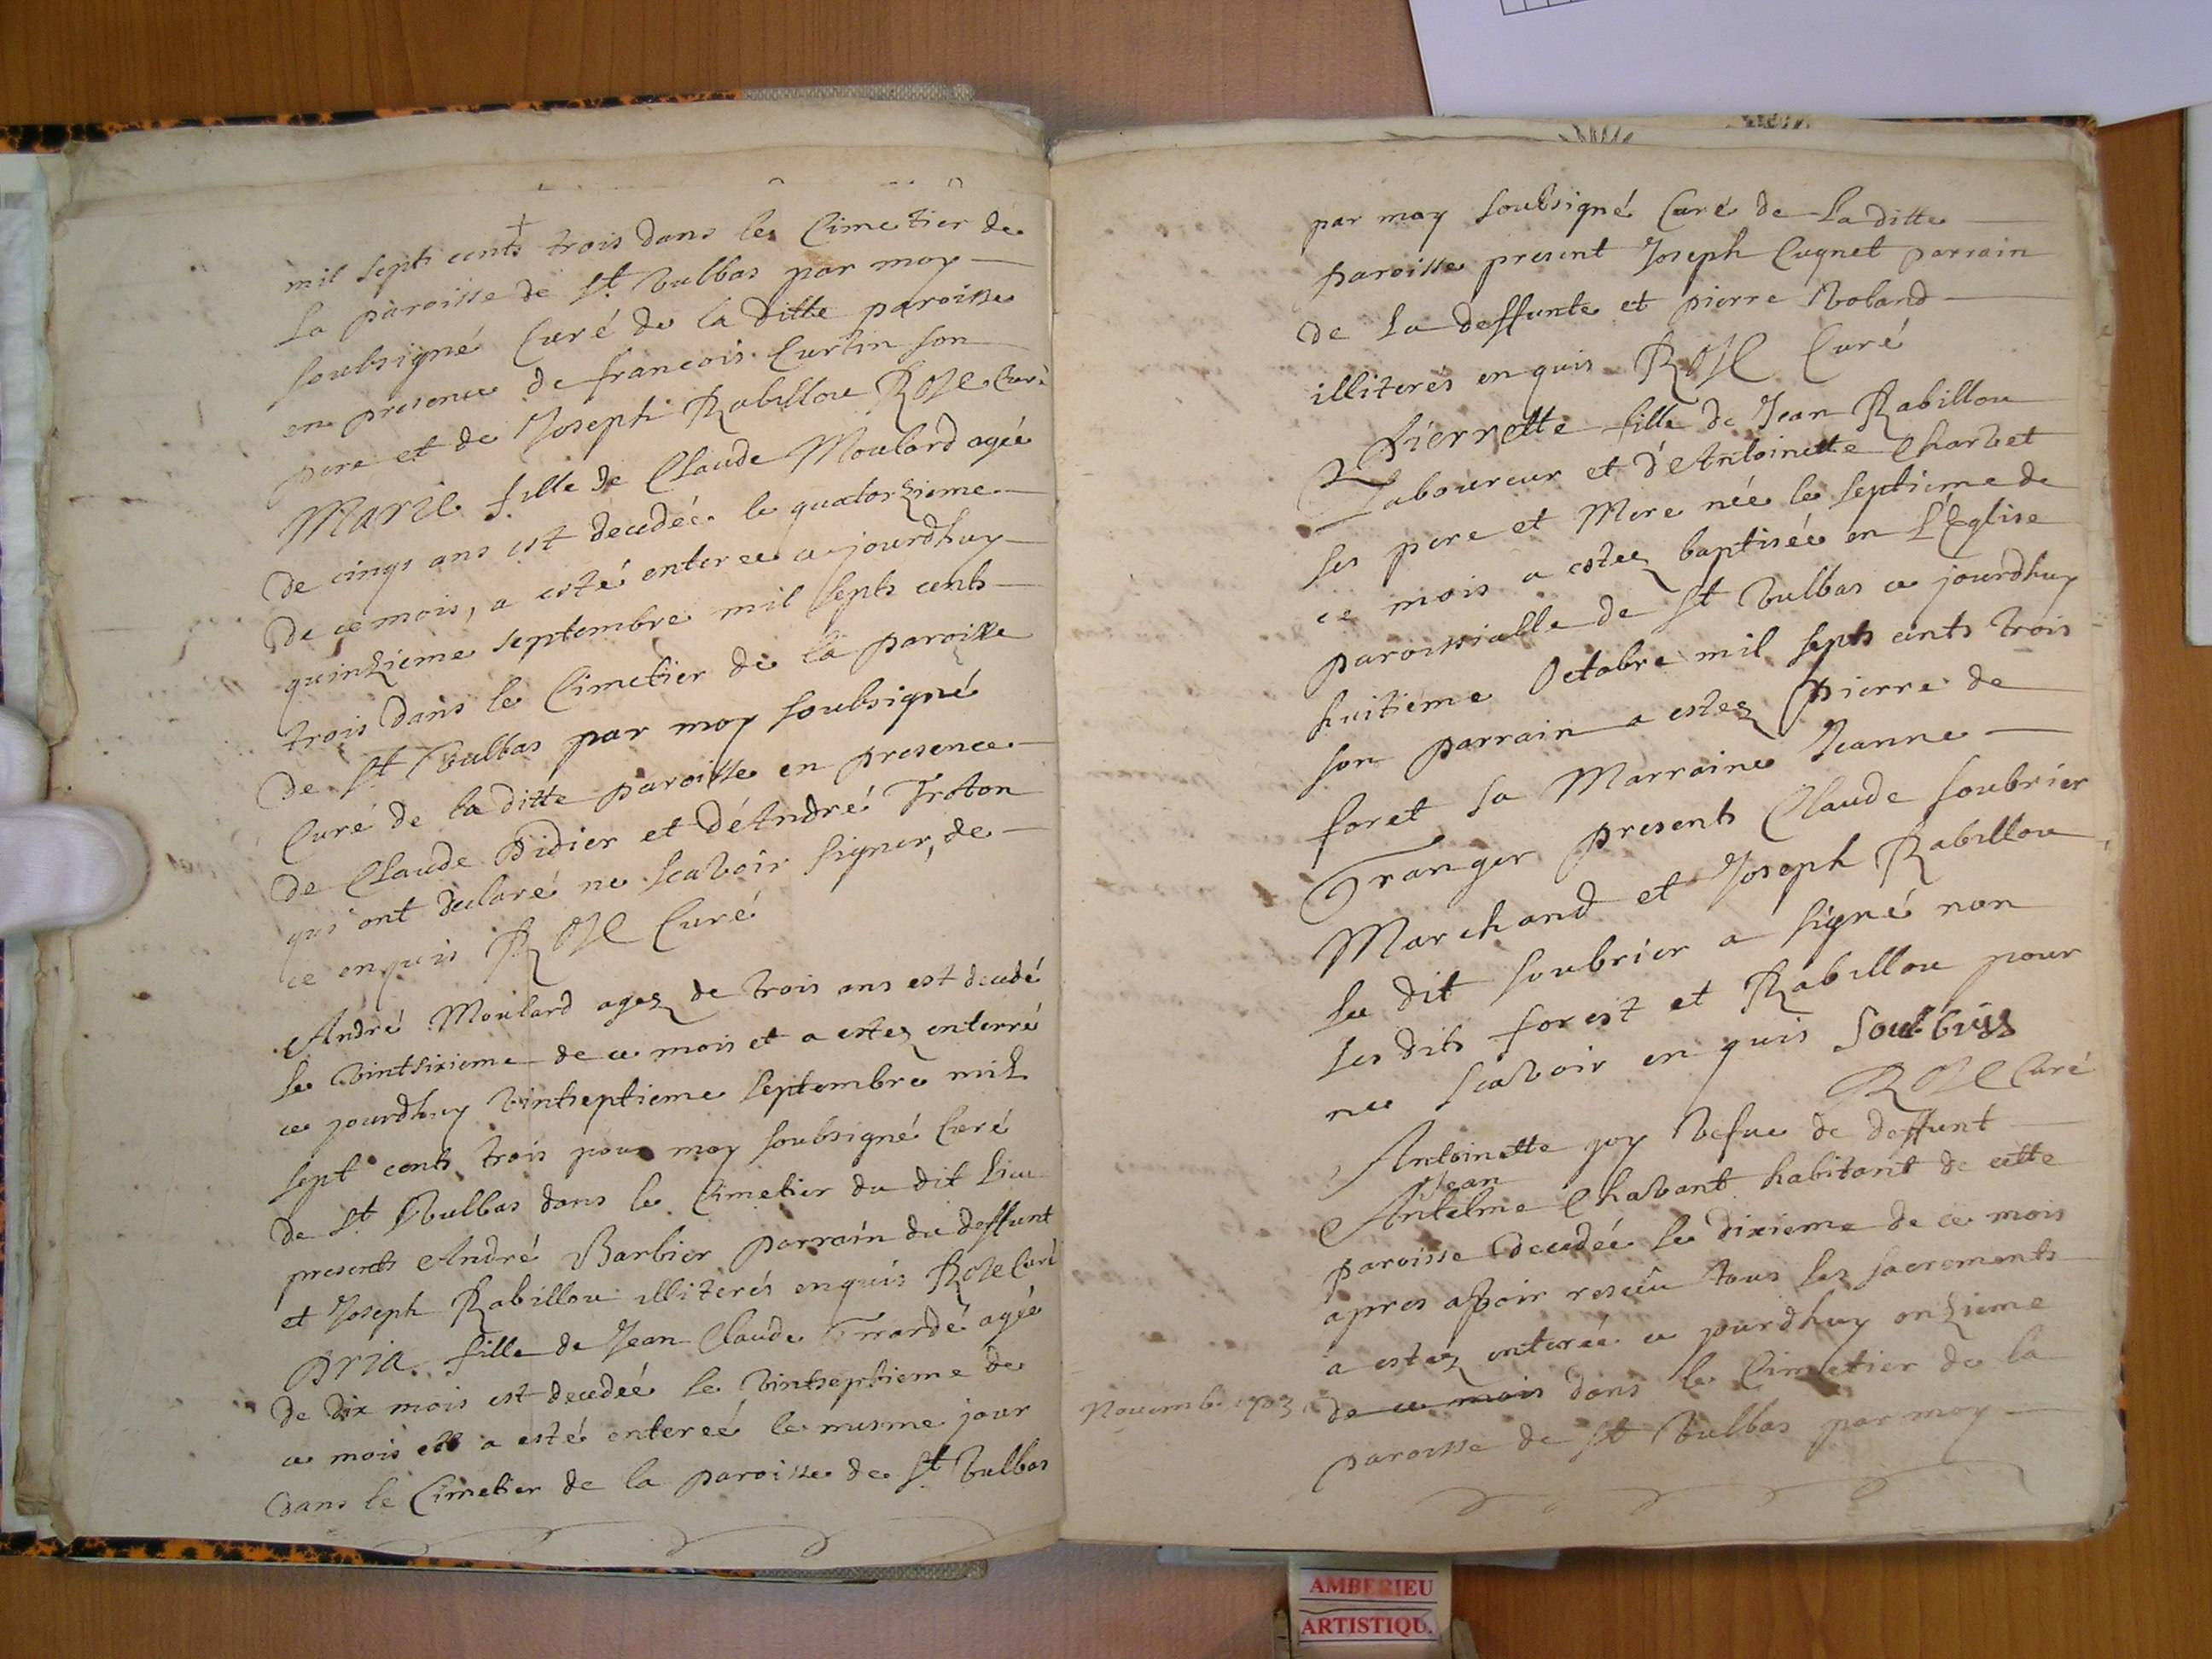 mil septs cents trois dans le Cimetier de
la paroisse de St Vulbas par moy
soubsigné Curé de la ditte paroisse
en presence de francois Curtin son
pere et de Joseph Rabillou ROSE Curé
MARIE fille de Claude Moulard agée
de cinqs ans est decedée le quatorzieme
de ce mois, a esté enteree ce jourdhuy
quinzieme septembre mil septs cents
trois dans le Cimetier de la paroisse
de St Vulbas par moy soubsigné
Curé de la ditte paroisse en presence
de Claude Didier et d'André Troton
qui ont declaré ne scavoir signer, de
ce enquis ROSE Curé
André Moulard agez de trois ans est decedé
le vintsixieme de ce mois et a estez enterré
ce jourdhuy vintseptieme septembre mil
sept cents trois pour moy soubsigné Curé
de St Vulbas dans le Cimetier du dit lieu
presents André Barbier parrain du deffunt
et Joseph Rabillou illiterés enquis ROSE Curé
PRIA fille de Jean Claude Trardé agée
de dix mois est decedée le vintseptieme de
ce mois ell a esté entereé le mesme jour
dans le Cimetier de la paroisse de St Vulbas
par moy soubsigné Curé de la ditte
paroisse present Joseph Cugnet parrain
de la deffunte et pierre Voland
illiterés enquis ROSE Curé
Pierrette fille de Jean Rabillou
Laboureur et d'Antoinette Charvet
ses pere et Mere née le septieme de
ce mois a estez baptisée en L'Eglise
paroissialle de St Vulbas ce jourdhuy
huitiéme Octobre mil septs cents trois
son parrain a estez Pierre de
foret sa Marraine Jeanne
Tranger presents Claude soubrier
Marchand et Joseph Rabillou
le dit soubrier a signé non
les dits forest et Rabillou pour
ne scavoir enquis
ROSE Curé
Antoinette goy vefue de deffunt
Jean
Antelme Chavant habitant de cette
paroisse decedée le dixieme de ce mois
apres avoir reseeu tous les sacrements
a estez enterée ce jourdhuy onzieme
Nouemb. 1703 de ce mois dans le Cimetier de la
paroisse de St Vulbas par moy
AMBERIEU
ARTISTIQU.